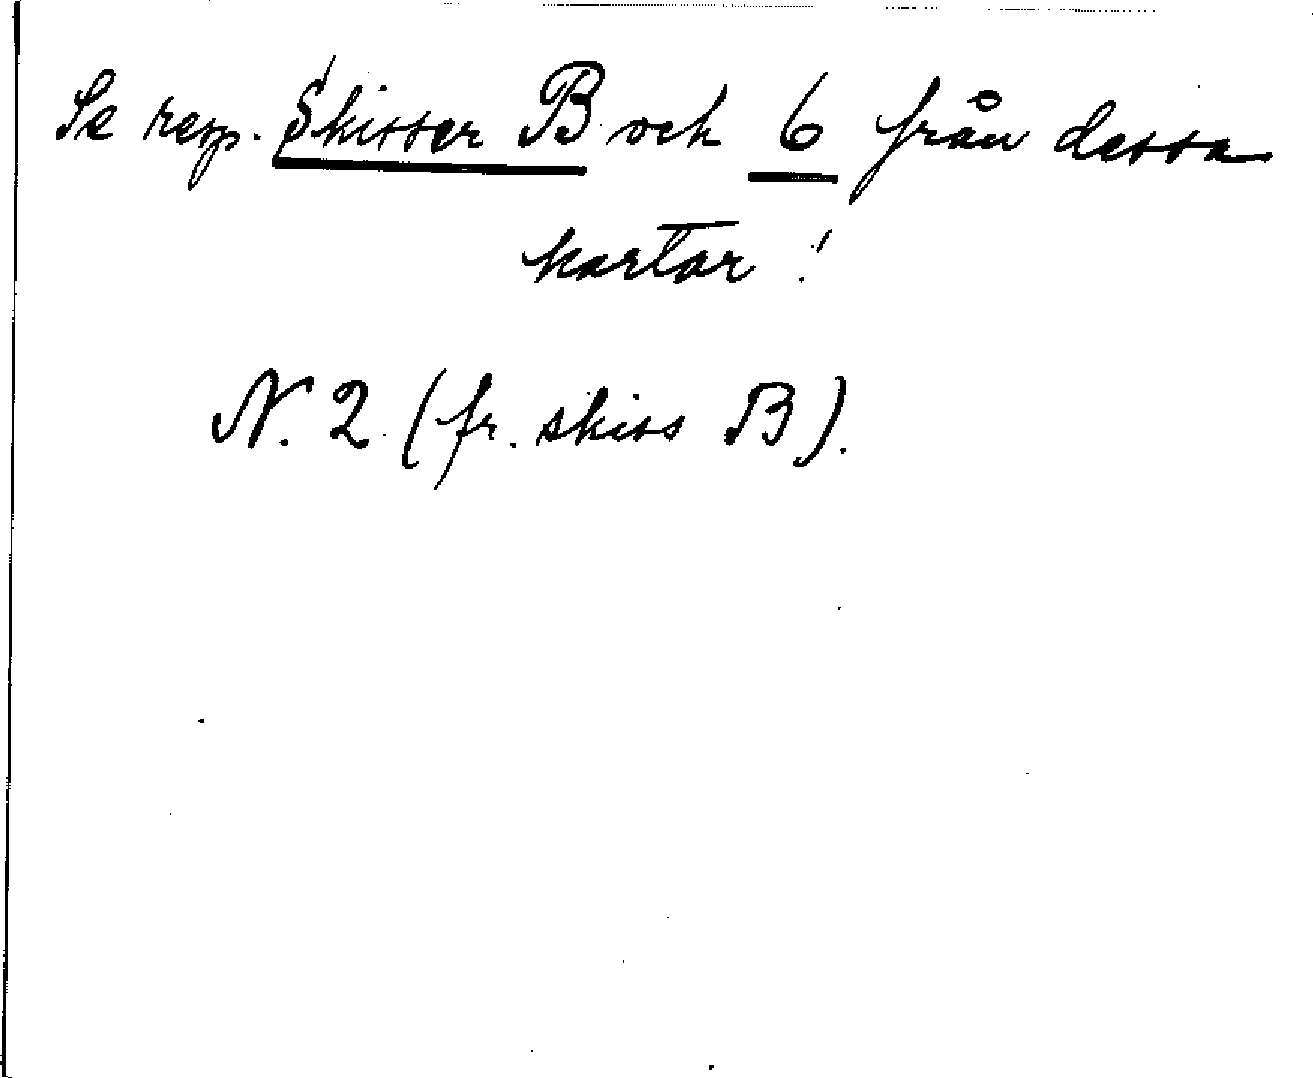 Se resp. Skisser B och 6 från dessa
kartor!
N. 2 (fr. skiss B).